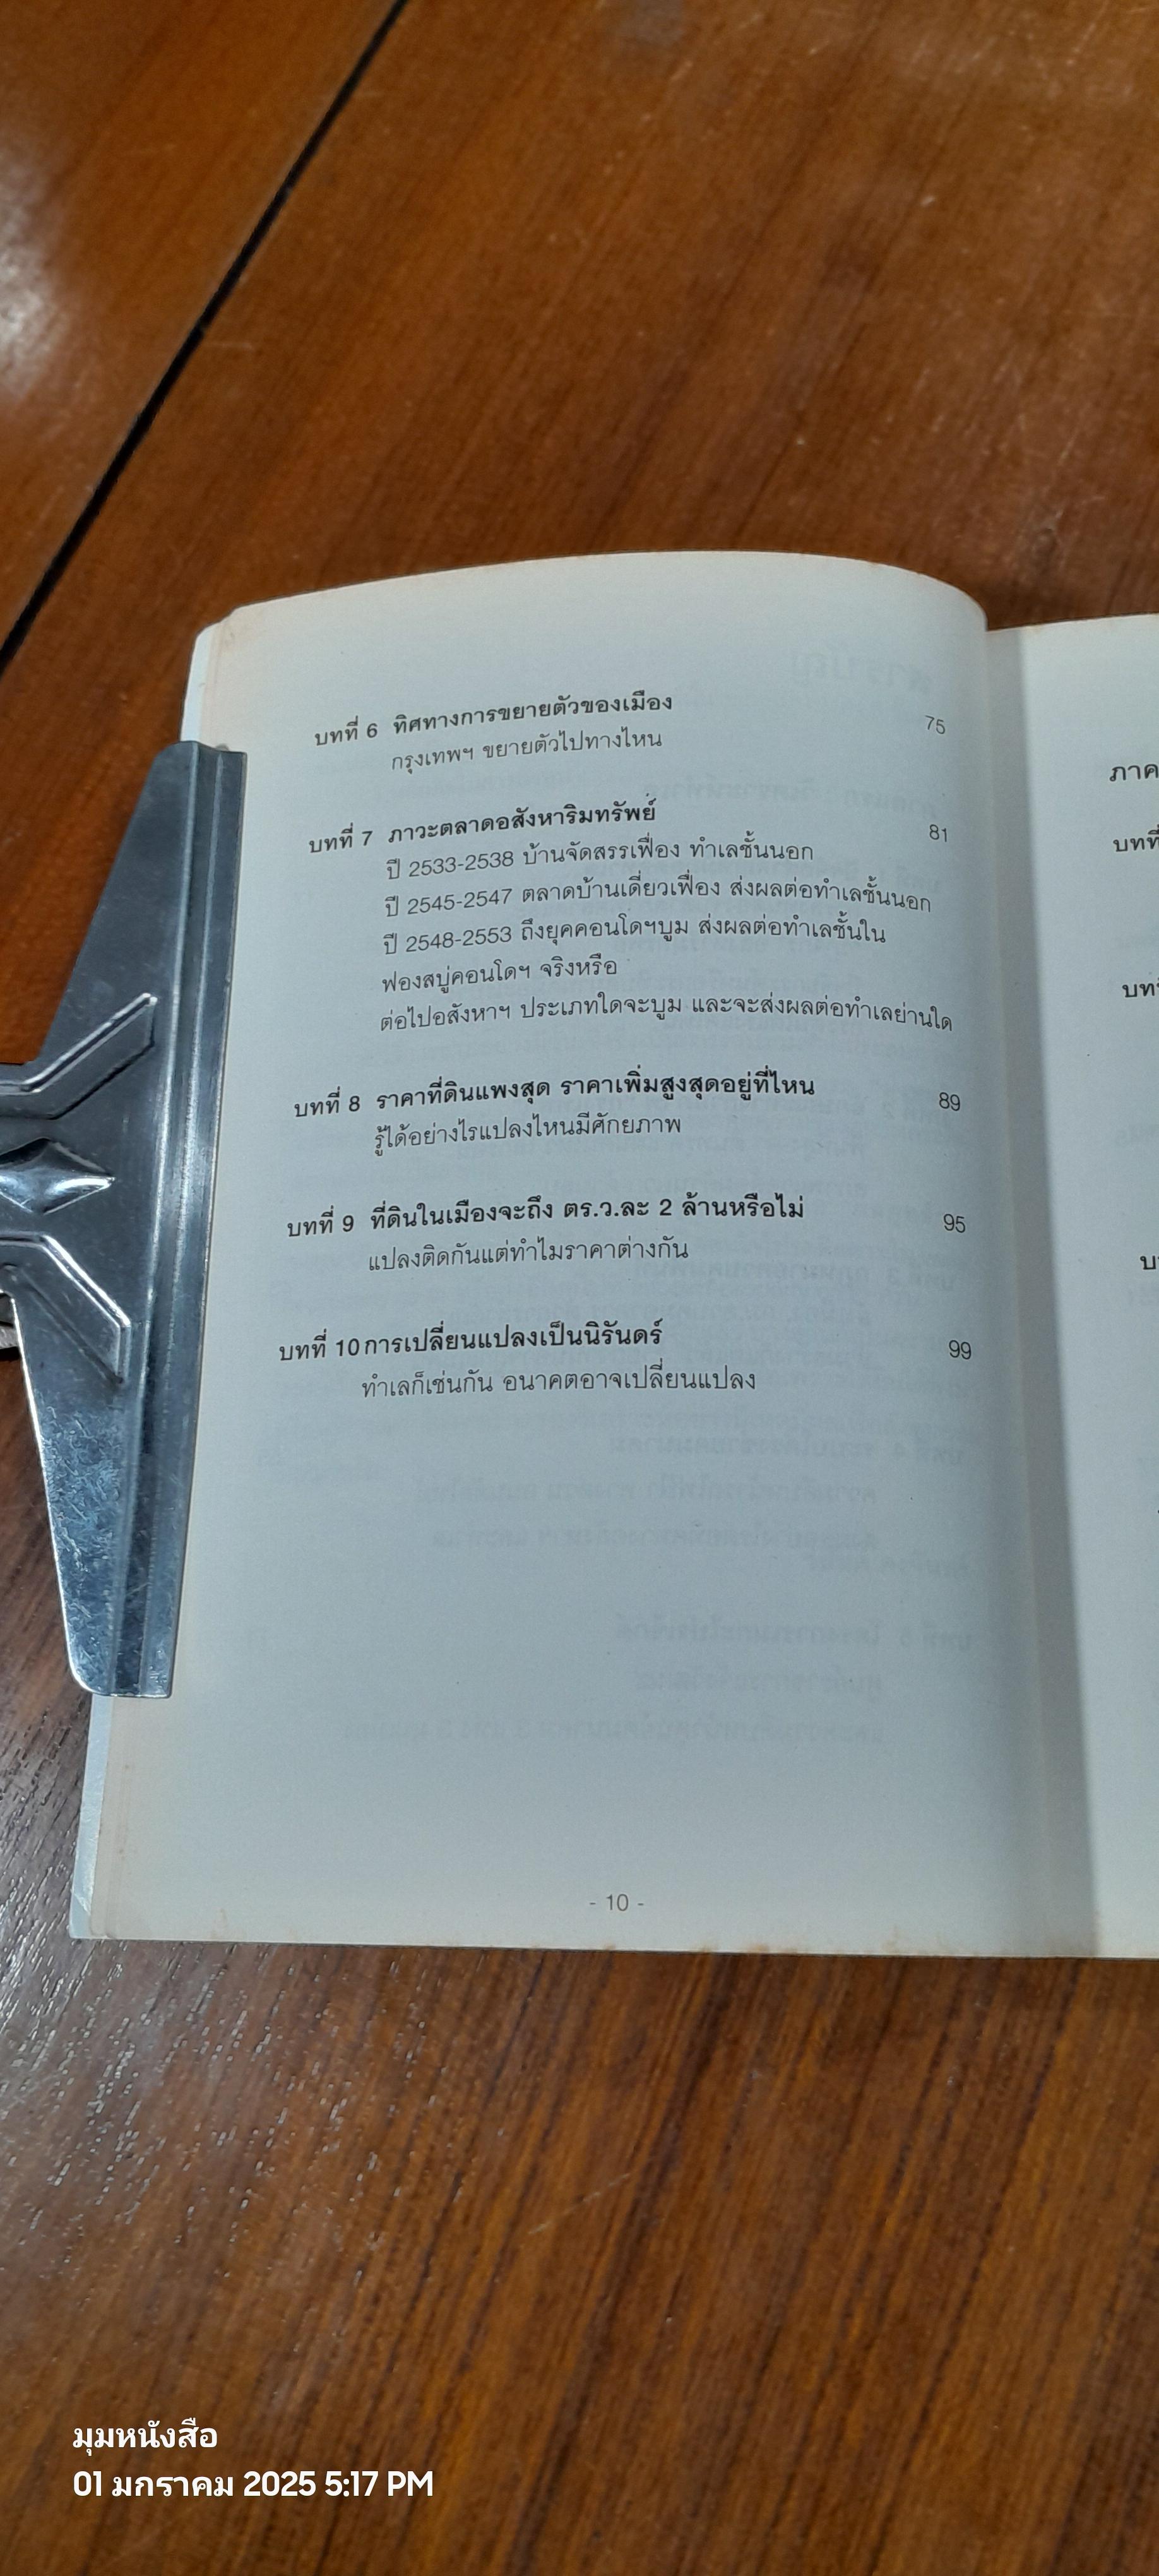 บทที่ 6 ทิศทางการขยายตัวของเมือง 75
กรุงเทพฯ ขยายตัวไปทางไหน
บทที่ 7 ภาวะตลาดอสังหาริมทรัพย์ 81
ปี 2533-2538 บ้านจัดสรรเฟื่อง ทำเลชั้นนอก
ปี 2545-2547 ตลาดบ้านเดี่ยวเฟื่อง ส่งผลต่อทำเลชั้นนอก
ปี 2548-2553 ถึงยุคคอนโดฯบูม ส่งผลต่อทำเลชั้นใน
ฟองสบู่คอนโดฯ จริงหรือ
ต่อไปอสังหาฯ ประเภทใดจะบูม และจะส่งผลต่อทำเลย่านใด
บทที่ 8 ราคาที่ดินแพงสุด ราคาเพิ่มสูงสุดอยู่ที่ไหน 89
รู้ได้อย่างไรแปลงไหนมีศักยภาพ
บทที่ 9 ที่ดินในเมืองจะถึง ตร.ว.ละ 2 ล้านหรือไม่ 95
แปลงติดกันแต่ทำไมราคาต่างกัน
บทที่ 10 การเปลี่ยนแปลงเป็นนิรันดร์ 99
ทำเลก็เช่นกัน อนาคตอาจเปลี่ยนแปลง
- 10 -
ภาค
บทที่
บทที่
มุมหนังสือ
01 มกราคม 2025 5:17 PM